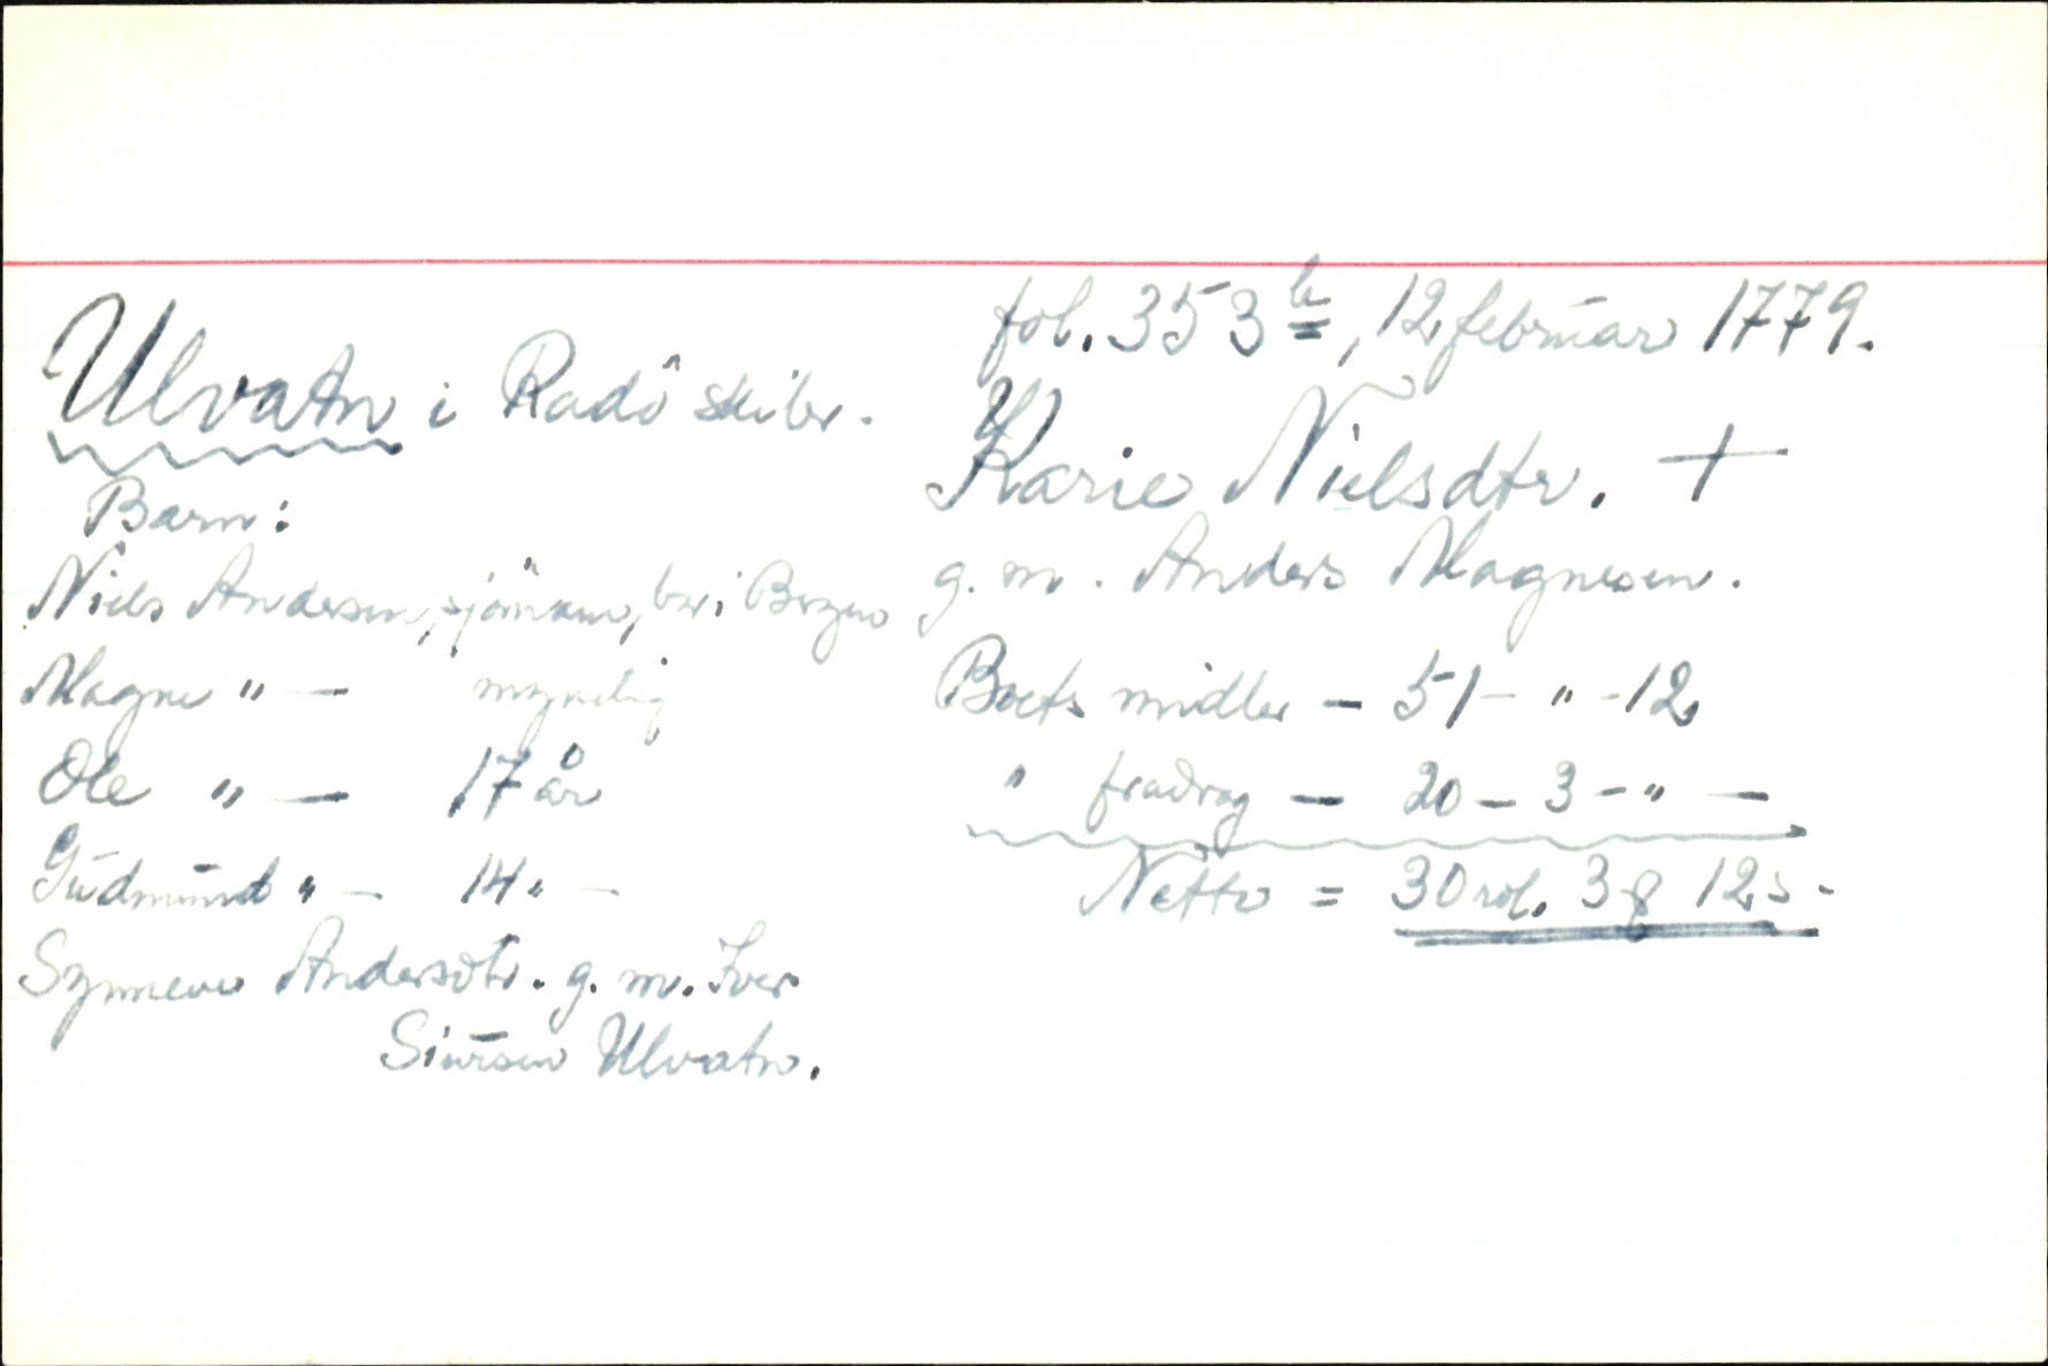 fol. 353 b, 12 februar 1779.
Ulvatn i Radö skibr.
Karie Nielsdtr. +
g. m. Anders Magnesen.
Barn:
Niels Andersen, sjömann, bor i Bergen
Magne " — myndig
Ole " — 17 år
Gudmund " — 14 " —
Synneve Andersdtr. g. m. Iver
Siursen Ulvatn.
Boets midler — 51 — " - 12
" fradrag — 20 — 3 - " —
Netto = 30 rdl. 3 ƒ 12 s -